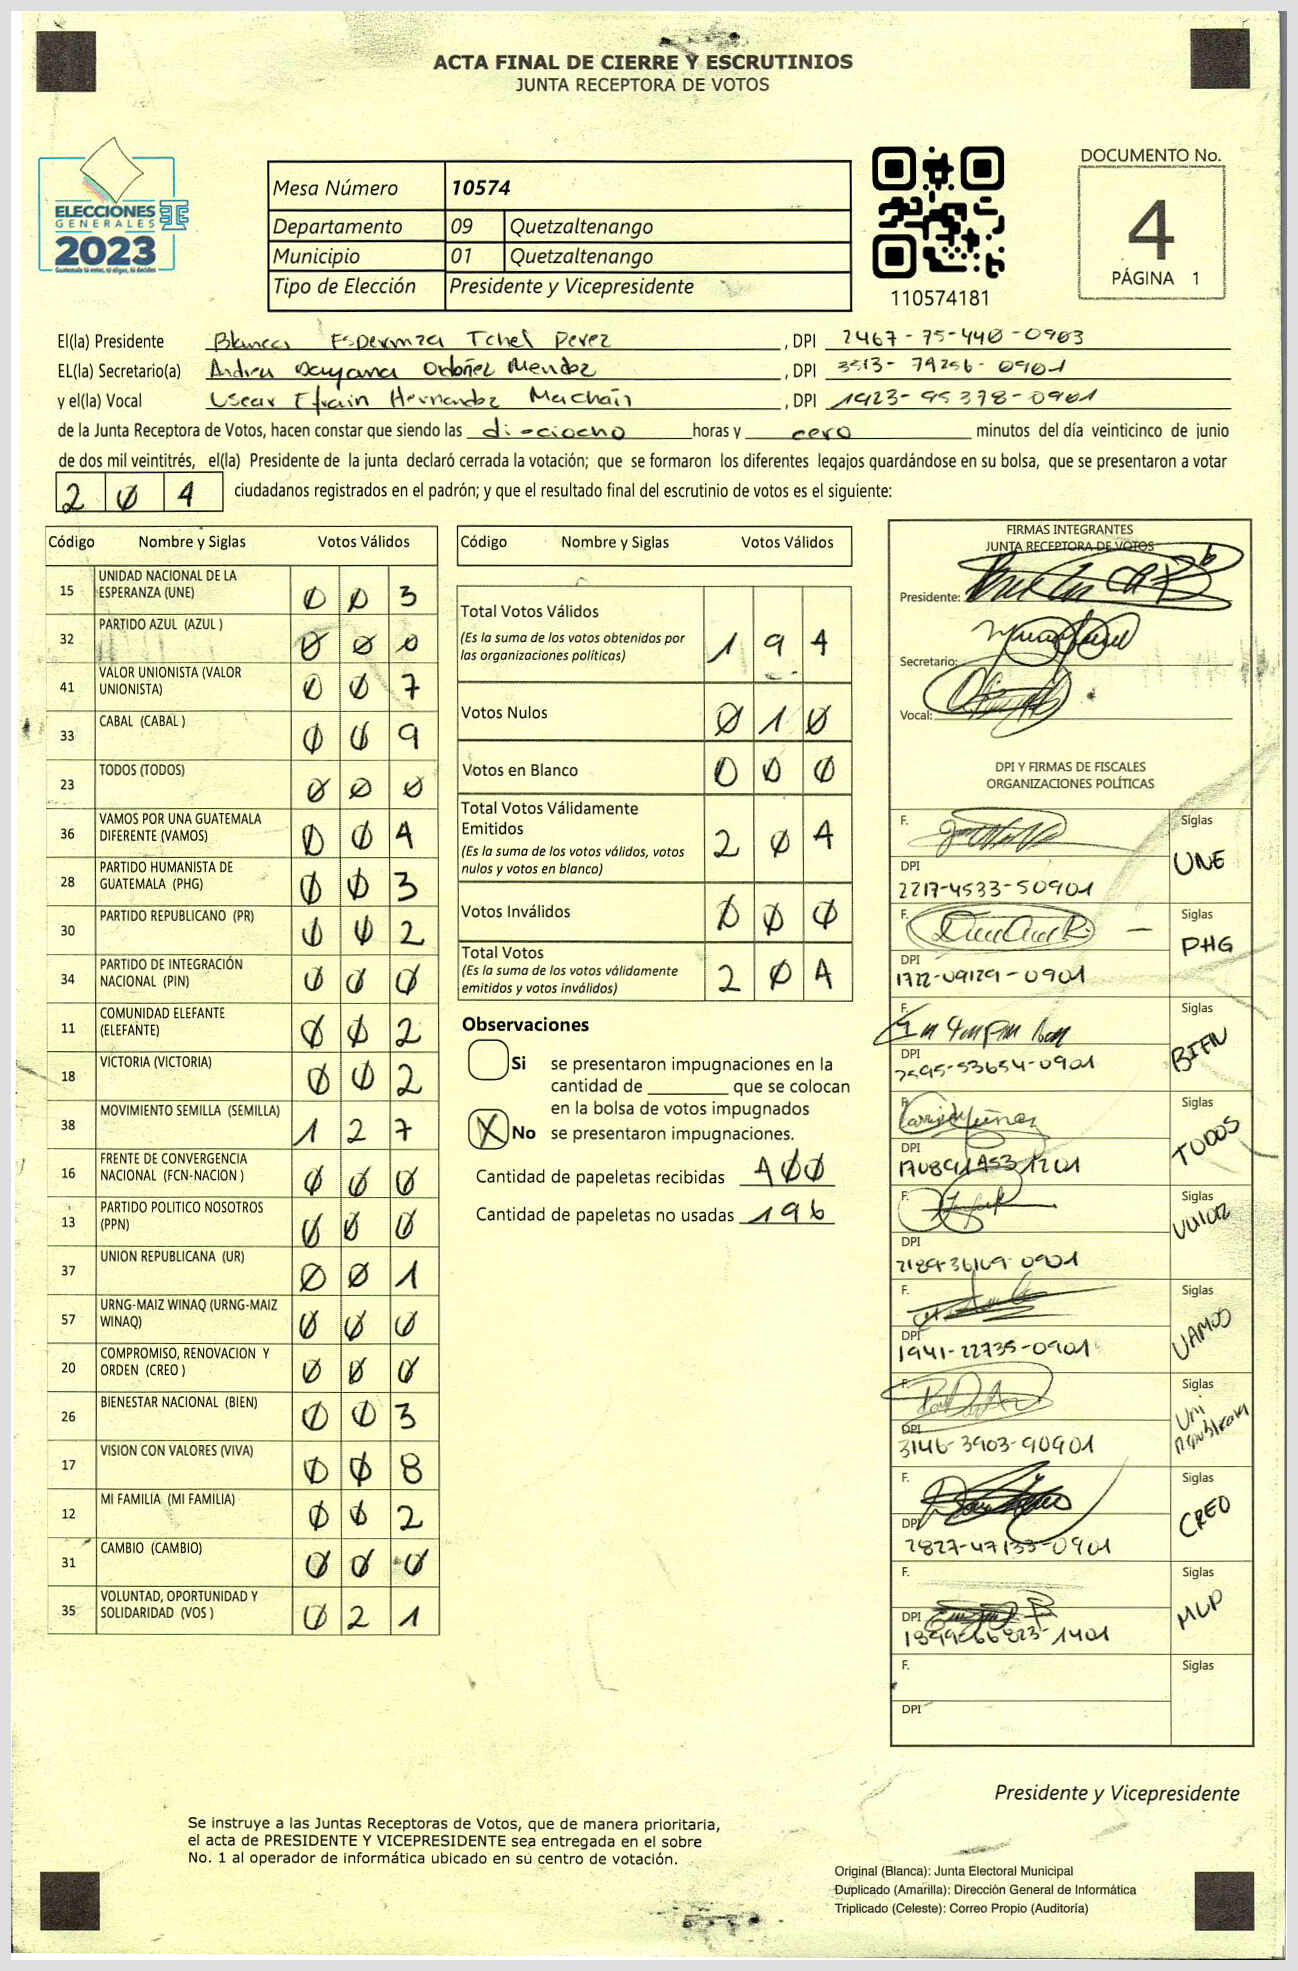 ACTA FINAL DE CIERRE Y ESCRUTINIOS
JUNTA RECEPTORA DE VOTOS
ELECCIONES
GENERALES
2023
Mesa Número 10574
Departamento 09 Quetzaltenango
Municipio 01 Quetzaltenango
Tipo de Elección Presidente y Vicepresidente
110574181
DOCUMENTO No.
4
PÁGINA 1
El(la) Presidente Blanca Esperanza Tchel Perez , DPI 2467-75-440-0903
EL(la) Secretario(a) Andrea Dayana Ordoñez Mendez , DPI 3513-79256-0901
y el(la) Vocal Oscar Efrain Hernandez Machain , DPI 1923-95378-0901
de la Junta Receptora de Votos, hacen constar que siendo las dieciocho horas y cero minutos del día veinticinco de junio
de dos mil veintitrés, el(la) Presidente de la junta declaró cerrada la votación; que se formaron los diferentes legajos guardándose en su bolsa, que se presentaron a votar
204 ciudadanos registrados en el padrón; y que el resultado final del escrutinio de votos es el siguiente:
Código Nombre y Siglas Votos Válidos
15 UNIDAD NACIONAL DE LA
ESPERANZA (UNE) 0 0 3
32 PARTIDO AZUL (AZUL ) 0 0 0
41 VALOR UNIONISTA (VALOR
UNIONISTA) 0 0 7
33 CABAL (CABAL ) 0 0 9
23 TODOS (TODOS) 0 0 0
36 VAMOS POR UNA GUATEMALA
DIFERENTE (VAMOS) 0 0 4
28 PARTIDO HUMANISTA DE
GUATEMALA (PHG) 0 0 3
30 PARTIDO REPUBLICANO (PR) 0 0 2
34 PARTIDO DE INTEGRACIÓN
NACIONAL (PIN) 0 0 0
11 COMUNIDAD ELEFANTE
(ELEFANTE) 0 0 2
18 VICTORIA (VICTORIA) 0 0 2
38 MOVIMIENTO SEMILLA (SEMILLA) 1 2 7
16 FRENTE DE CONVERGENCIA
NACIONAL (FCN-NACION ) 0 0 0
13 PARTIDO POLITICO NOSOTROS
(PPN) 0 0 0
37 UNION REPUBLICANA (UR) 0 0 1
57 URNG-MAIZ WINAQ (URNG-MAIZ
WINAQ) 0 0 0
20 COMPROMISO, RENOVACION Y
ORDEN (CREO ) 0 0 0
26 BIENESTAR NACIONAL (BIEN) 0 0 3
17 VISION CON VALORES (VIVA) 0 0 8
12 MI FAMILIA (MI FAMILIA) 0 0 2
31 CAMBIO (CAMBIO) 0 0 0
35 VOLUNTAD, OPORTUNIDAD Y
SOLIDARIDAD (VOS ) 0 2 1
Código Nombre y Siglas Votos Válidos
Total Votos Válidos 1 9 4
(Es la suma de los votos obtenidos por
las organizaciones políticas)
Votos Nulos 0 1 0
Votos en Blanco 0 0 0
Total Votos Válidamente
Emitidos 2 0 4
(Es la suma de los votos válidos, votos
nulos y votos en blanco)
Votos Inválidos 0 0 0
Total Votos 2 0 4
(Es la suma de los votos válidamente
emitidos y votos inválidos)
Observaciones
Si se presentaron impugnaciones en la
cantidad de ________ que se colocan
en la bolsa de votos impugnados
X No se presentaron impugnaciones.
Cantidad de papeletas recibidas 400
Cantidad de papeletas no usadas 196
FIRMAS INTEGRANTES
JUNTA RECEPTORA DE VOTOS
Presidente:
Secretario:
Vocal:
DPI Y FIRMAS DE FISCALES
ORGANIZACIONES POLÍTICAS
F. Siglas
UNE
DPI
2217-4533-50901
F. Siglas
PHG
DPI
1722-09129-0901
F. Siglas
BIEN
DPI
2595-53654-0901
F. Siglas
TODOS
DPI
170891453 1201
F. Siglas
Valor
DPI
2189-36169-0901
F. Siglas
VAMOS
DPI
1941-22735-0901
F. Siglas
Uni
DPI
3146-3903-90901
F. Siglas
CREO
DPI
2827-47133-0901
F. Siglas
MLP
DPI
1899-66823-1401
F. Siglas
DPI
Presidente y Vicepresidente
Se instruye a las Juntas Receptoras de Votos, que de manera prioritaria,
el acta de PRESIDENTE Y VICEPRESIDENTE sea entregada en el sobre
No. 1 al operador de informática ubicado en su centro de votación.
Original (Blanca): Junta Electoral Municipal
Duplicado (Amarilla): Dirección General de Informática
Triplicado (Celeste): Correo Propio (Auditoría)